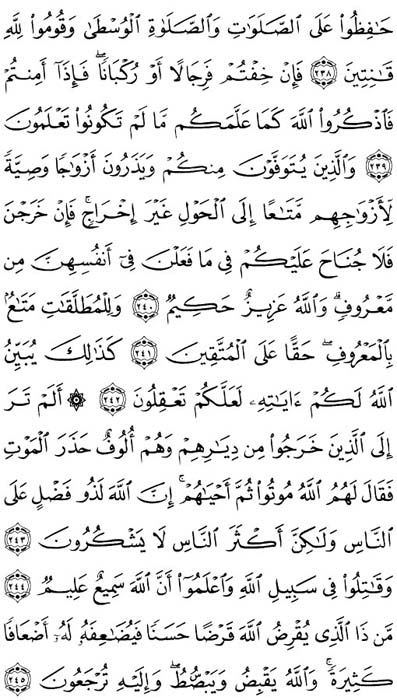 حَـٰفِظُوا۟ عَلَى ٱلصَّلَوَٰتِ وَٱلصَّلَوٰةِ ٱلْوُسْطَىٰ وَقُومُوا۟ لِلَّهِ
قَـٰنِتِينَ ٢٣٨ فَإِنْ خِفْتُمْ فَرِجَالًا أَوْ رُكْبَانًا ۖ فَإِذَآ أَمِنتُمْ
فَٱذْكُرُوا۟ ٱللَّهَ كَمَا عَلَّمَكُم مَّا لَمْ تَكُونُوا۟ تَعْلَمُونَ
٢٣٩ وَٱلَّذِينَ يُتَوَفَّوْنَ مِنكُمْ وَيَذَرُونَ أَزْوَٰجًا وَصِيَّةً
لِّأَزْوَٰجِهِم مَّتَـٰعًا إِلَى ٱلْحَوْلِ غَيْرَ إِخْرَاجٍ ۚ فَإِنْ خَرَجْنَ
فَلَا جُنَاحَ عَلَيْكُمْ فِى مَا فَعَلْنَ فِىٓ أَنفُسِهِنَّ مِن
مَّعْرُوفٍ ۗ وَٱللَّهُ عَزِيزٌ حَكِيمٌ ٢٤٠ وَلِلْمُطَلَّقَـٰتِ مَتَـٰعٌۢ
بِٱلْمَعْرُوفِ ۖ حَقًّا عَلَى ٱلْمُتَّقِينَ ٢٤١ كَذَٰلِكَ يُبَيِّنُ
ٱللَّهُ لَكُمْ ءَايَـٰتِهِۦ لَعَلَّكُمْ تَعْقِلُونَ ٢٤٢ ۞ أَلَمْ تَرَ
إِلَى ٱلَّذِينَ خَرَجُوا۟ مِن دِيَـٰرِهِمْ وَهُمْ أُلُوفٌ حَذَرَ ٱلْمَوْتِ
فَقَالَ لَهُمُ ٱللَّهُ مُوتُوا۟ ثُمَّ أَحْيَـٰهُمْ ۚ إِنَّ ٱللَّهَ لَذُو فَضْلٍ عَلَى
ٱلنَّاسِ وَلَـٰكِنَّ أَكْثَرَ ٱلنَّاسِ لَا يَشْكُرُونَ ٢٤٣
وَقَـٰتِلُوا۟ فِى سَبِيلِ ٱللَّهِ وَٱعْلَمُوٓا۟ أَنَّ ٱللَّهَ سَمِيعٌ عَلِيمٌ ٢٤٤
مَّن ذَا ٱلَّذِى يُقْرِضُ ٱللَّهَ قَرْضًا حَسَنًا فَيُضَـٰعِفَهُۥ لَهُۥٓ أَضْعَافًا
كَثِيرَةً ۚ وَٱللَّهُ يَقْبِضُ وَيَبْصُۜطُ وَإِلَيْهِ تُرْجَعُونَ ٢٤٥